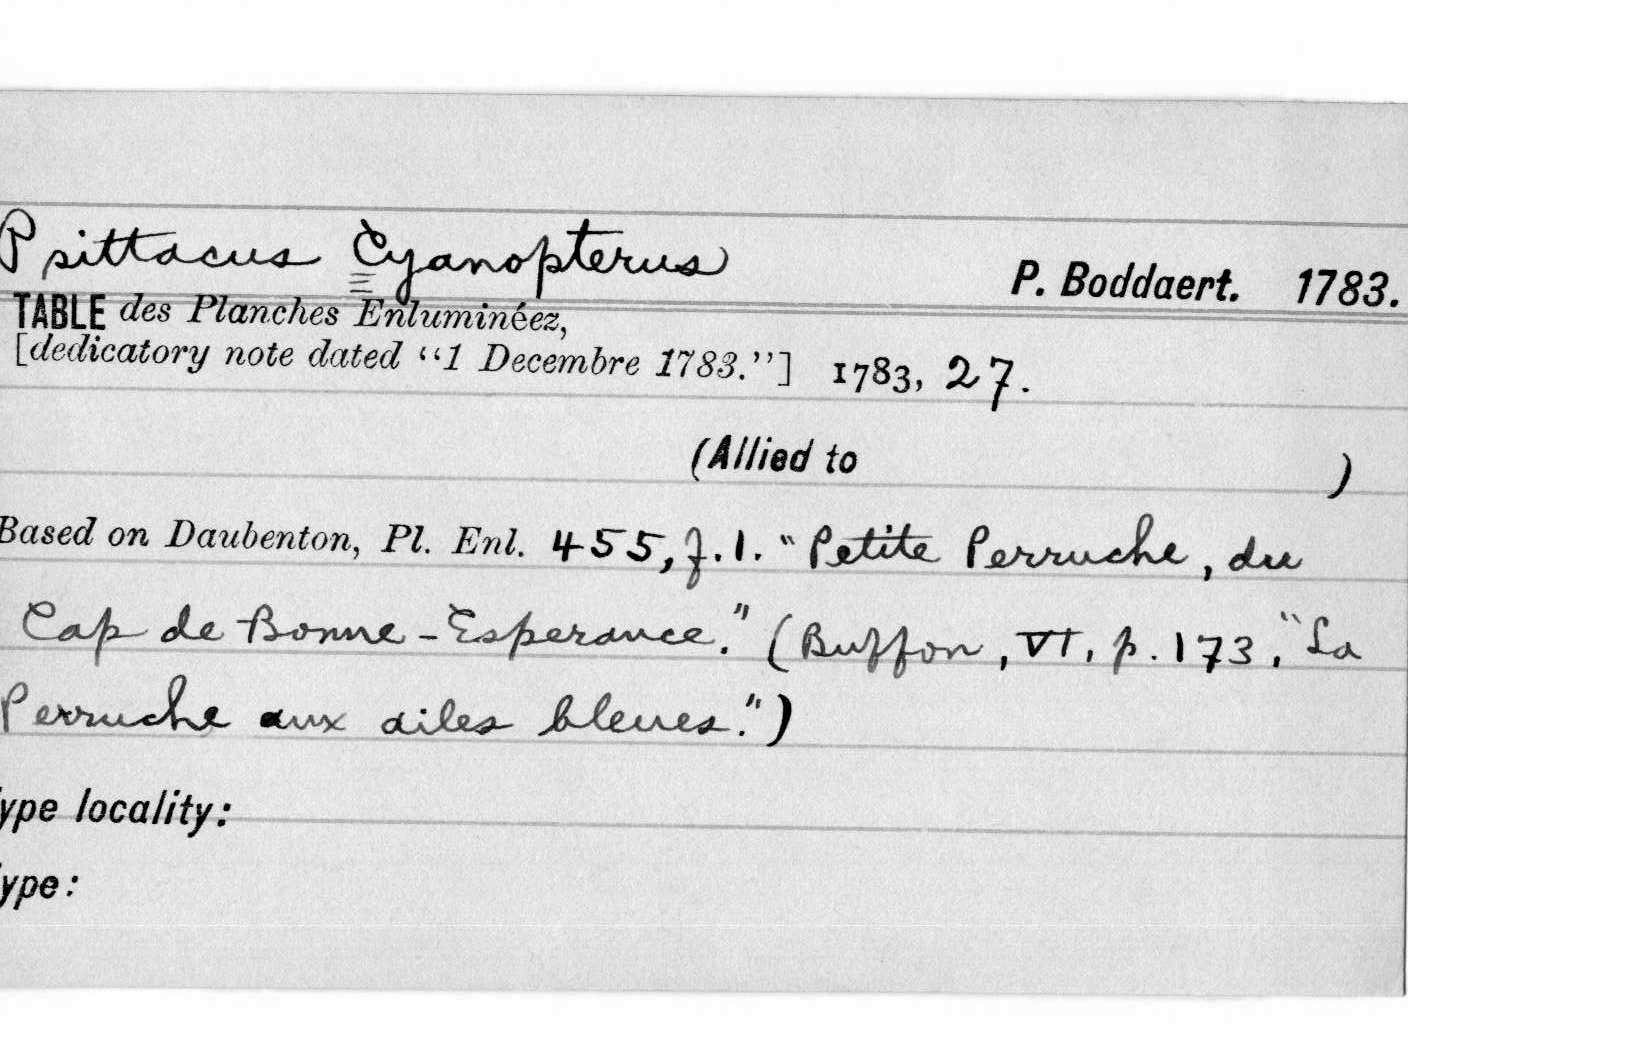 Psittacus Cyanopterus P. Boddaert. 1783.
TABLE des Planches Enluminéez,
[dedicatory note dated “1 Decembre 1783.”] 1783, 27.
(Allied to )
Based on Daubenton, Pl. Enl. 455, f.1. "Petite Perruche, du
Cap de Bonne-Esperance." (Buffon, VI, p. 173, "La
Perruche aux ailes bleues.")
ype locality:
ype: